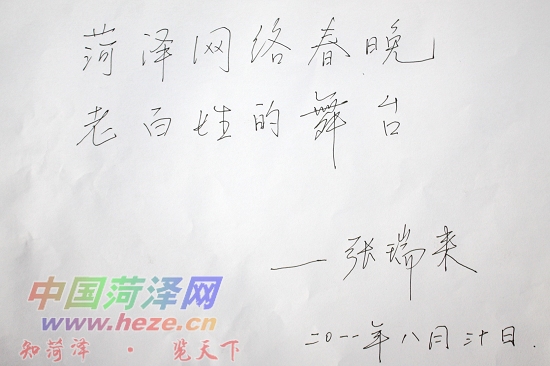 菏泽网络春晚
老百姓的舞台
——张瑞来
中国菏泽网
www.heze.cn
知菏泽 · 览天下
二〇一一年八月三十日.